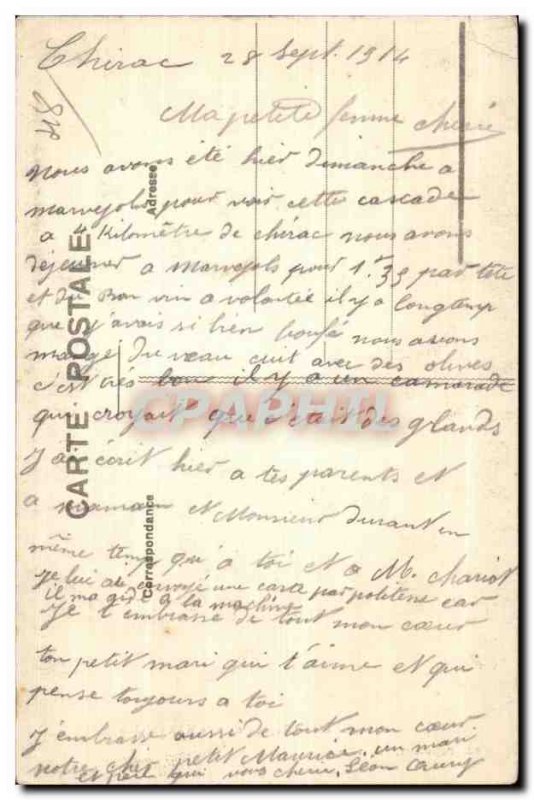 Chirac 28 Sept. 1914
418
Ma petite femme chérie
nous avons été hier dimanche a
marvejols pour voir cette cascade
a 4 Kilomètre de chirac nous avons
déjeuner a Marvejols pour 1.f 35 par tête
et du Bon vin a volontée il y a longtemp
que j'avais si bien boufé nous avons
mangé du veau cuit avec des olives
c'est très bon il y a un camarade
qui croyait que c'était des glands
J'ai écrit hier a tes parents et
a maman et Monsieur durant en
même temps qu'a toi et a M. Chariot
je lui ai envoyé une carte par politesse car
il m'a à la machine
Je t'embrasse de tout mon cœur
ton petit mari qui t'aime et qui
pense toujours a toi
J'embrasse aussi de tout mon cœur
notre cher petit Maurice. un mari
et père qui vous cheri, Léon
CARTE POSTALE
Adresse
Correspondance
CPAPHIL